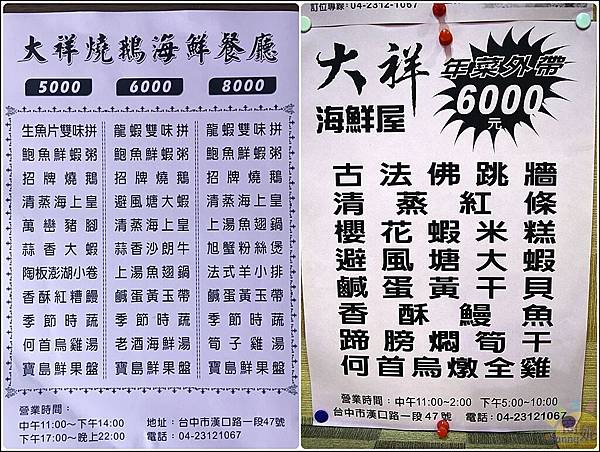 大祥燒鵝海鮮餐廳
5000 6000 8000
生魚片雙味拼 龍蝦雙味拼 龍蝦雙味拼
鮑魚鮮蝦粥 鮑魚鮮蝦粥 鮑魚鮮蝦粥
招牌燒鵝 招牌燒鵝 招牌燒鵝
清蒸海上皇 避風塘大蝦 清蒸海上皇
萬巒豬腳 清蒸海上皇 上湯魚翅鍋
蒜香大蝦 蒜香沙朗牛 旭蟹粉絲煲
陶板澎湖小卷 上湯魚翅鍋 法式羊小排
香酥紅糟鰻 鹹蛋黃玉帶 鹹蛋黃玉帶
季節時蔬 季節時蔬 季節時蔬
何首烏雞湯 老酒海鮮湯 筍子雞湯
寶島鮮果盤 寶島鮮果盤 寶島鮮果盤
營業時間：
中午11:00~下午14:00 地址：台中市漢口路一段47號
下午17:00~晚上22:00 電話：04-23121067
訂位專線：04-2312-1067
大祥
海鮮屋
年菜外帶
6000元
古法佛跳牆
清蒸紅條
櫻花蝦米糕
避風塘大蝦
鹹蛋黃干貝
香酥鰻魚
蹄膀燜筍干
何首烏燉全雞
營業時間：中午11:00~2:00 下午5:00~10:00
台中市漢口路一段47號 電話：04-23121067